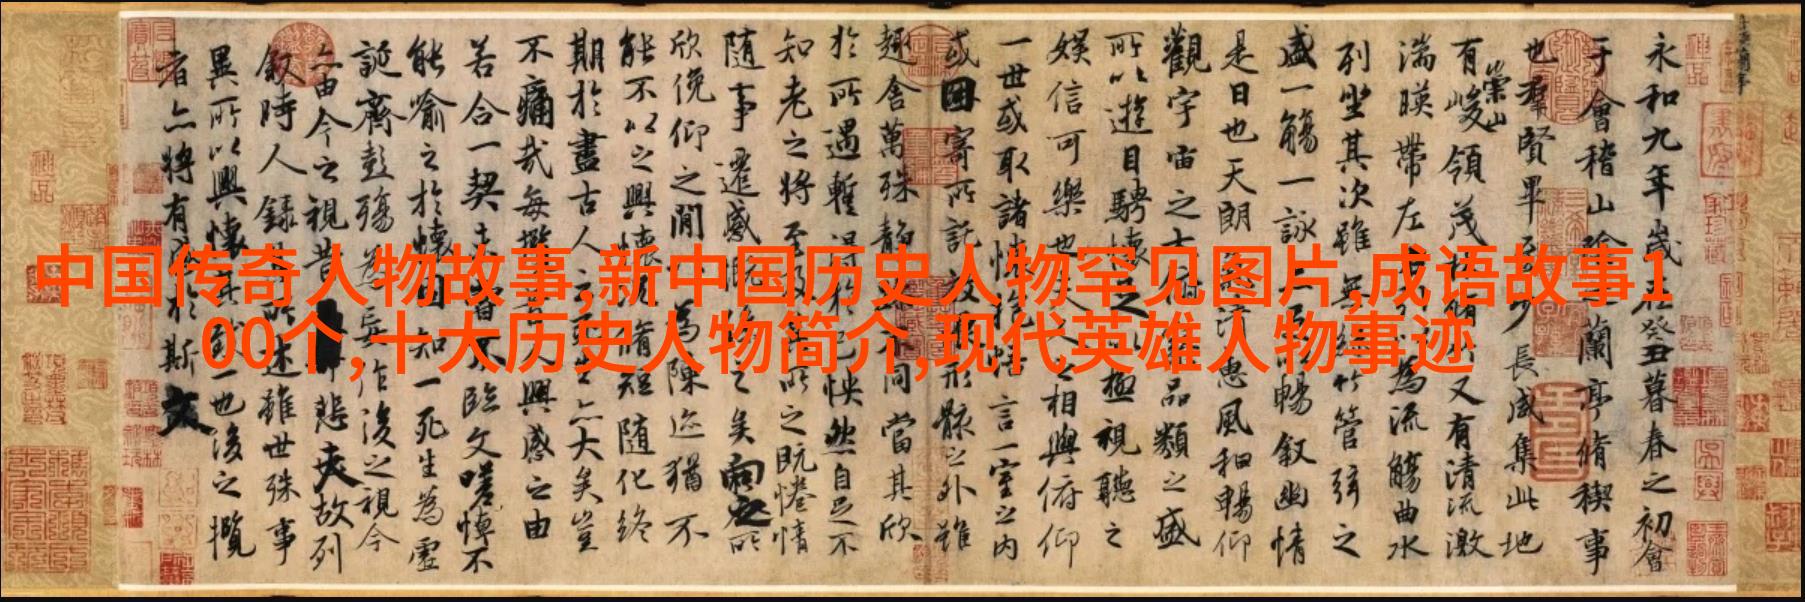 中国传奇人物故事,新中国历史人物罕见图片,成语故事1
00个,十大历史人物简介,现代英雄人物事迹
永和九年歲在癸丑暮春之初會
于會稽山陰之蘭亭脩稧事
也羣賢畢至少長咸集此地
有崇山峻領茂林脩竹又有清流激
湍暎帶左右引以為流觴曲水
列坐其次雖無絲竹管弦之
盛一觴一詠亦足以暢叙幽情
是日也天朗氣清惠風和暢仰
觀宇宙之大俯察品類之盛
所以遊目騁懷足以極視聽之
娛信可樂也夫人之相與俯仰
一世或取諸懷抱悟言一室之內
或因寄所託放浪形骸之外雖
趣舍萬殊靜躁不同當其欣
於所遇暫得於己怏然自足不
知老之將至及其所之既惓情
隨事遷感慨係之矣向之所
欣俛仰之閒以為陳迹猶不
能不以之興懷況脩短隨化終
期於盡古人云死生亦大矣豈
不痛哉每攬昔人興感之由
若合一契未嘗不臨文嗟悼不
能喻之於懷固知一死生為虛
誕齊彭殤為妄作後之視今
亦由今之視昔悲夫故列
叙時人錄其所述雖世殊事
異所以興懷其致一也後之攬
者亦將有感於斯文